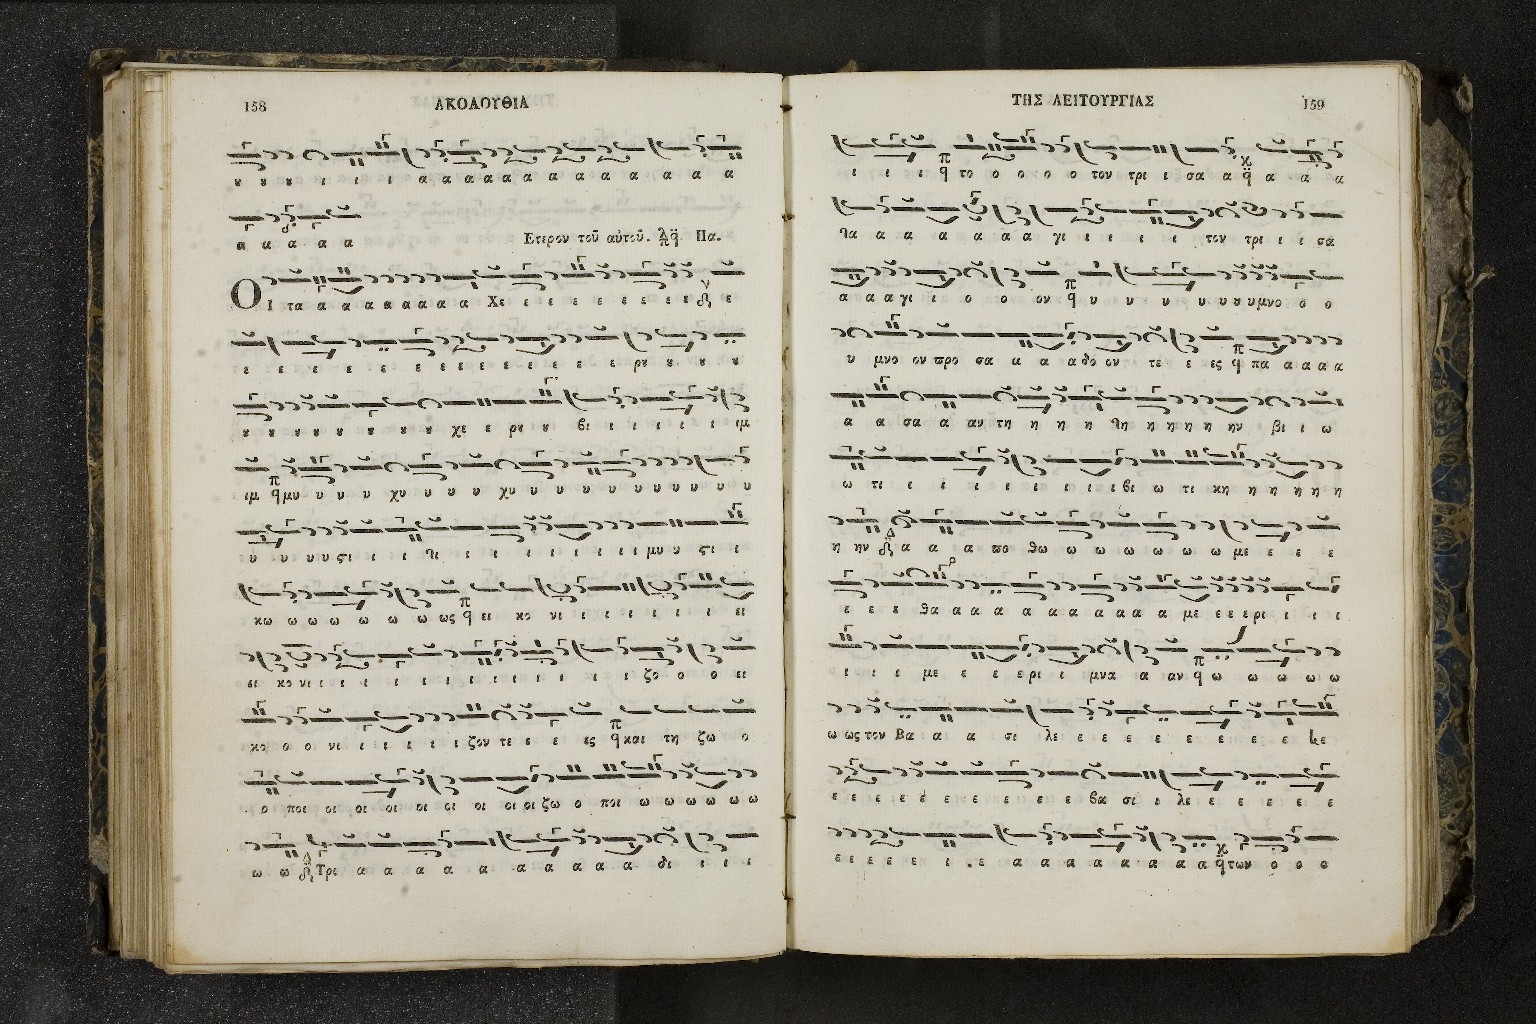 158
ΑΚΟΛΟΥΘΙΑ
ȣ ȣ ȣ ι ι ι α α α α α α α α α α α α α
α α α α α Ετερον τοῦ αὐτοῦ. Πα.
ΟΙ τα α α α α α α α α Χε ε ε ε ε ε ε ε ε ε
ε ε ε ε ε ε ε ε ε ε ε ε ε ρȣ ȣ ȣ ȣ
ȣ ȣ ȣ ȣ ȣ ȣ ȣ ȣ χε ε ρȣ ȣ βι ι ι ι ι ι ιμ
ιμ μυ υ υ υ χυ υ υ υ χυ υ υ υ υ υ υ υ υ υ υ
υ υ υ υ ϛι ι ι ϛι ι ι ι ι ι ι ι ι μυ υ ϛι ι
κω ω ω ω ω ω ω ως ει κο νι ι ι ι ι ι ι ει
ει κο νι ι ι ι ι ι ι ι ι ι ι ι ι ζο ο ο ει
κο ο ο νι ι ι ι ι ι ζον τε ε ε ες και τη ζω ο
ο ποι οι οι οι οι οι οι οι οι ζω ο ποι ω ω ω ω ω ω
ω ω Τρι α α α α α α α α α α δι ι ι ι
ΤΗΣ ΛΕΙΤΟΥΡΓΙΑΣ
159
ι ι ι το ο ο ο ο τον τρι ι σα α α α α
γα α α α α α α γι ι ι ι ι τον τρι ι ι σα
α α α γι ι ο ο ον υ υ υ υ υ υ υ υμνο ο ο
υ μνο ον προ σα α α α δο ον τε ε ες πα α α α α
α α σα α αν τη η η η τη η η η η ην βι ι ω
ω τι ι ι ι ι ι ι ι βι ω τι κη η η η η η
η ην α α α πο θω ω ω ω ω ω ω με ε ε ε
ε ε ε θα α α α α α α α α α α με ε ε ερι ι ι ι
ι ι ι με ε ε ερι ι μνα α αν ω ω ω ω ω
ω ως τον Βα α α σι λε ε ε ε ε ε ε ε ε
ε ε ε ε ε ε ε ε ε ε ε βα σι ι λε ε ε ε ε ε
ε ε ε ε ε ι ε α α α α α α α α α των ο ο ο